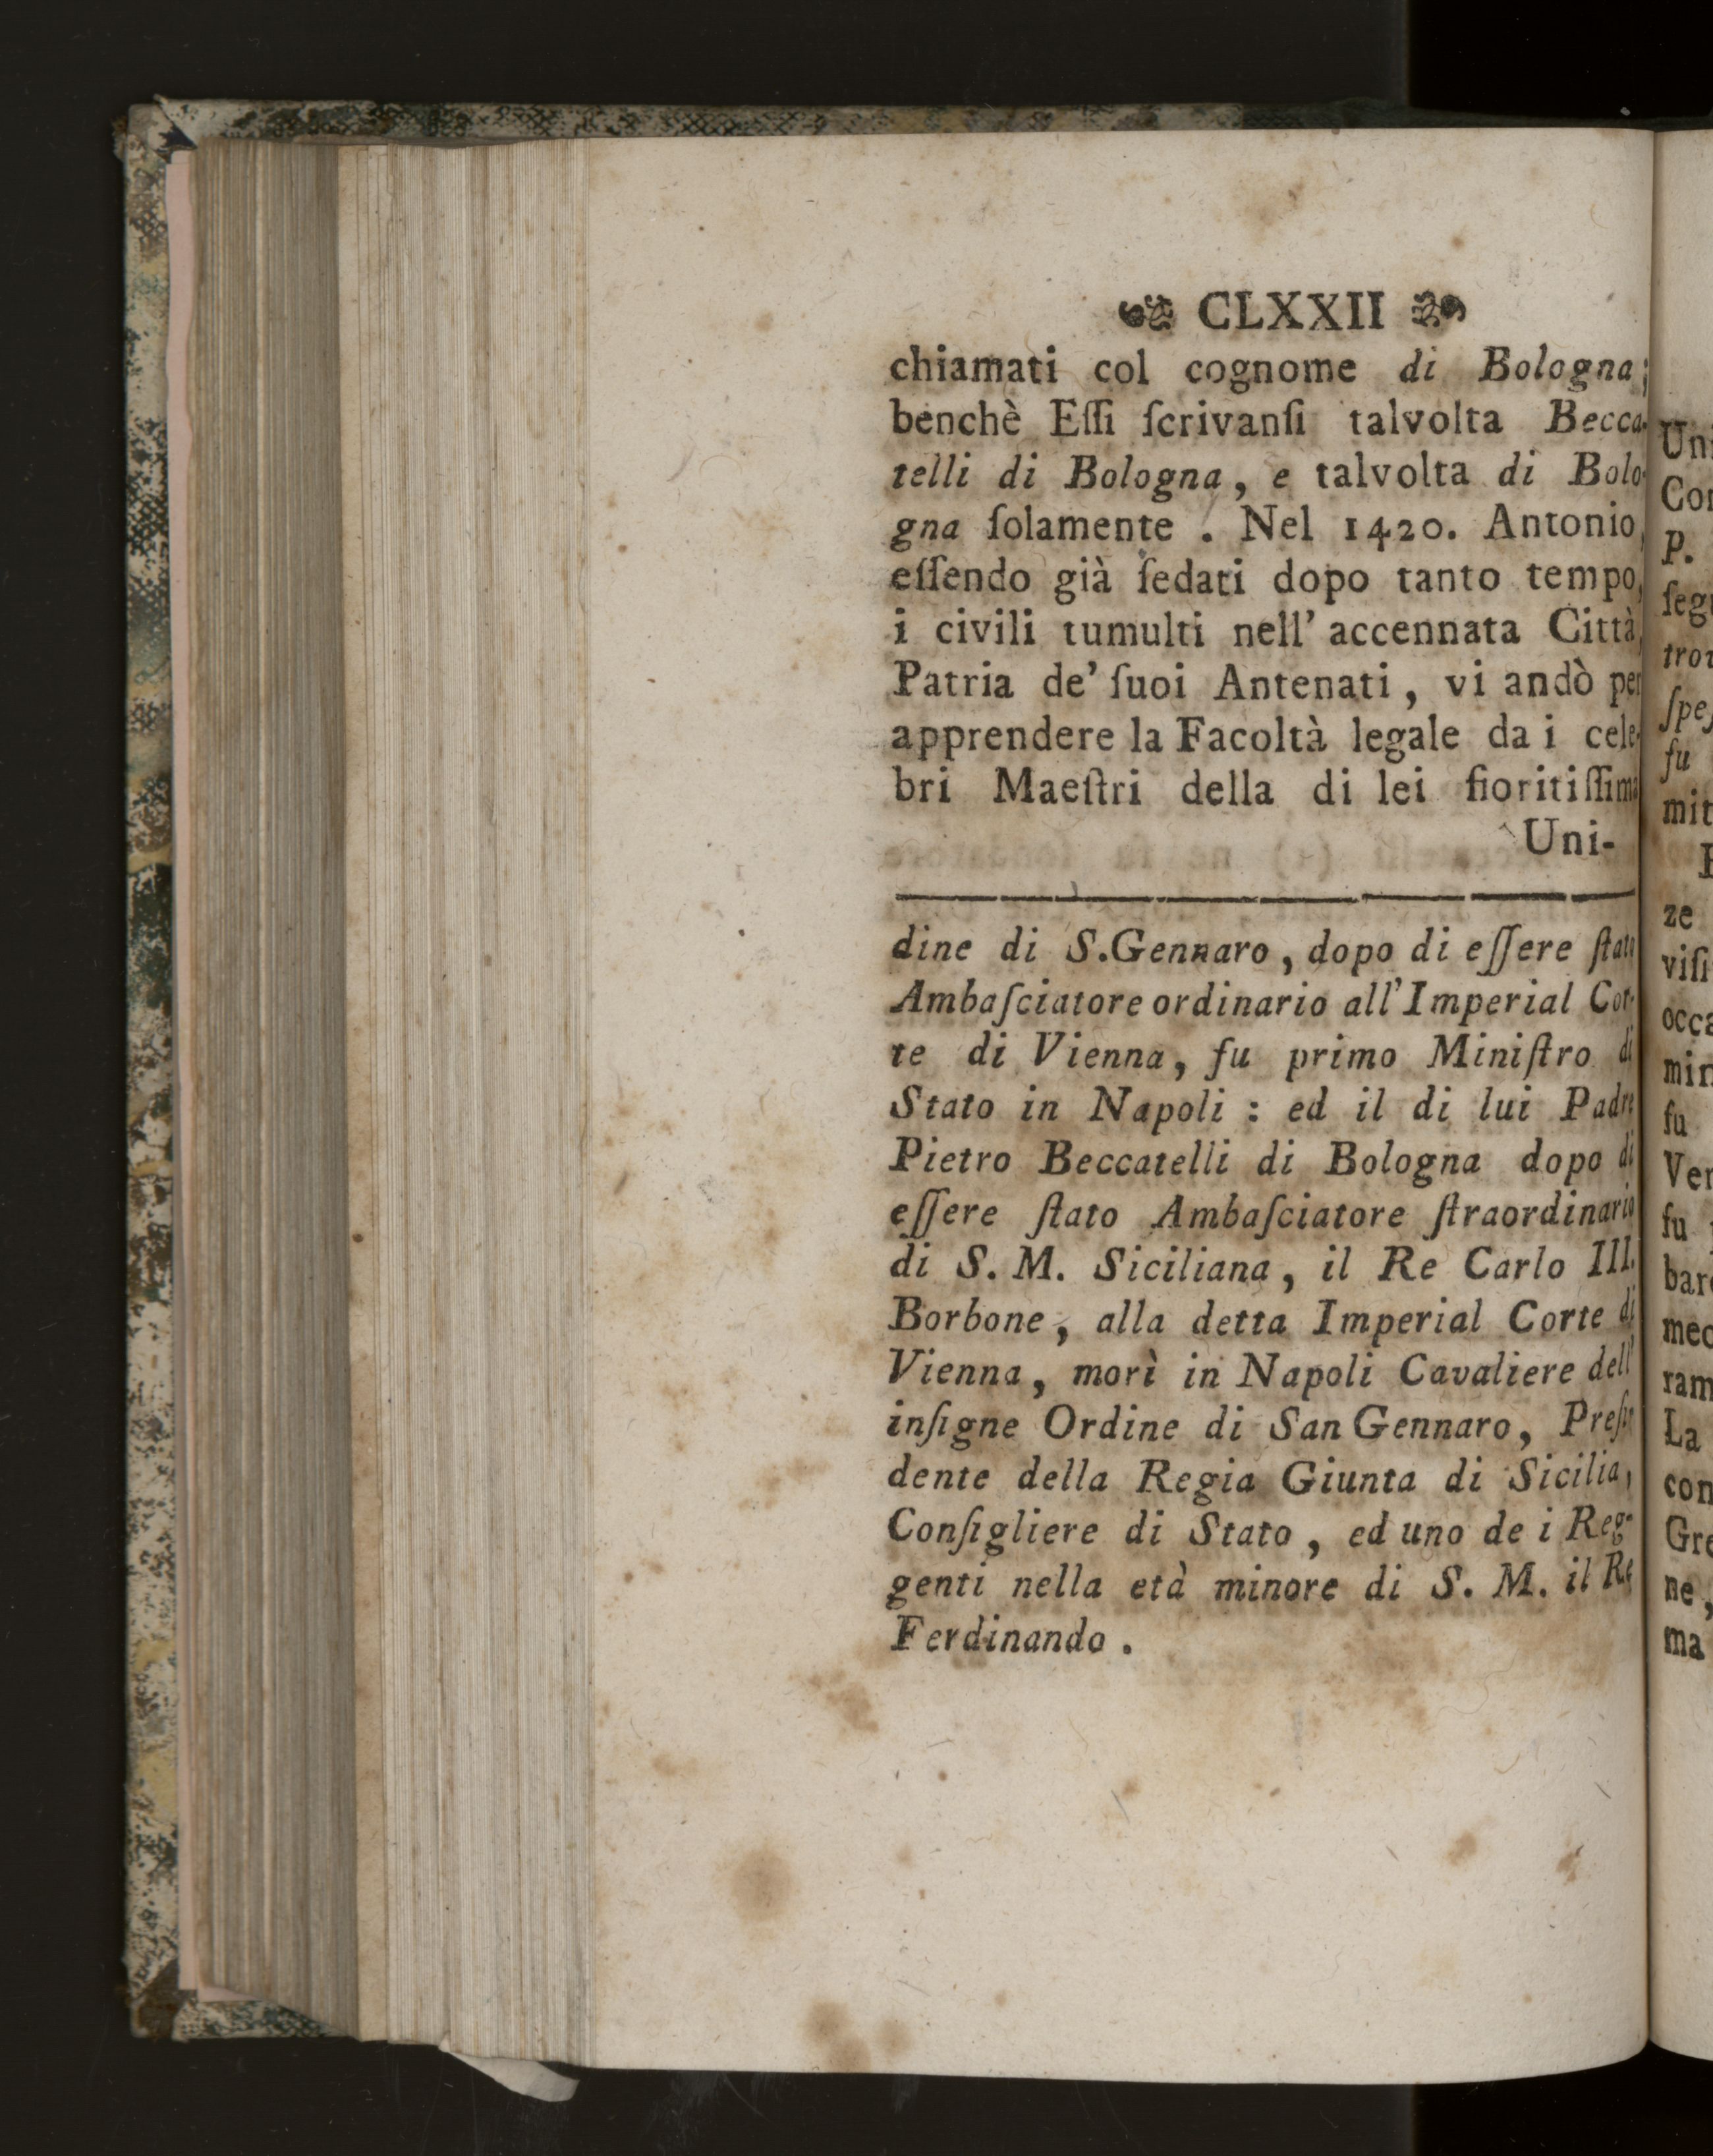 CLXXII
chiamati col cognome di Bologna;
benchè Eſſi ſcrivanſi talvolta Becca-
telli di Bologna, e talvolta di Bolo-
gna ſolamente . Nel 1420. Antonio,
eſſendo già ſedati dopo tanto tempo,
i civili tumulti nell' accennata Città,
Patria de' ſuoi Antenati, vi andò per
apprendere la Facoltà legale da i cele-
bri Maeſtri della di lei fioritiſſima
Uni-
dine di S.Gennaro, dopo di eſſere ſtato
Ambaſciatore ordinario all'Imperial Cor-
te di Vienna, fu primo Miniſtro di
Stato in Napoli : ed il di lui Padre
Pietro Beccatelli di Bologna dopo di
eſſere ſtato Ambaſciatore ſtraordinario
di S. M. Siciliana, il Re Carlo III.
Borbone, alla detta Imperial Corte di
Vienna, morì in Napoli Cavaliere dell'
inſigne Ordine di San Gennaro, Preſi-
dente della Regia Giunta di Sicilia,
Conſigliere di Stato, ed uno de i Reg-
genti nella età minore di S. M. il Re
Ferdinando .
Uni
Con
P.
ſeg
trov
ſpeſ
fu
mit
ze
viſi
occa
min
fu
Ver
fu
bar
mec
ram
La
con
Gre
ne,
ma